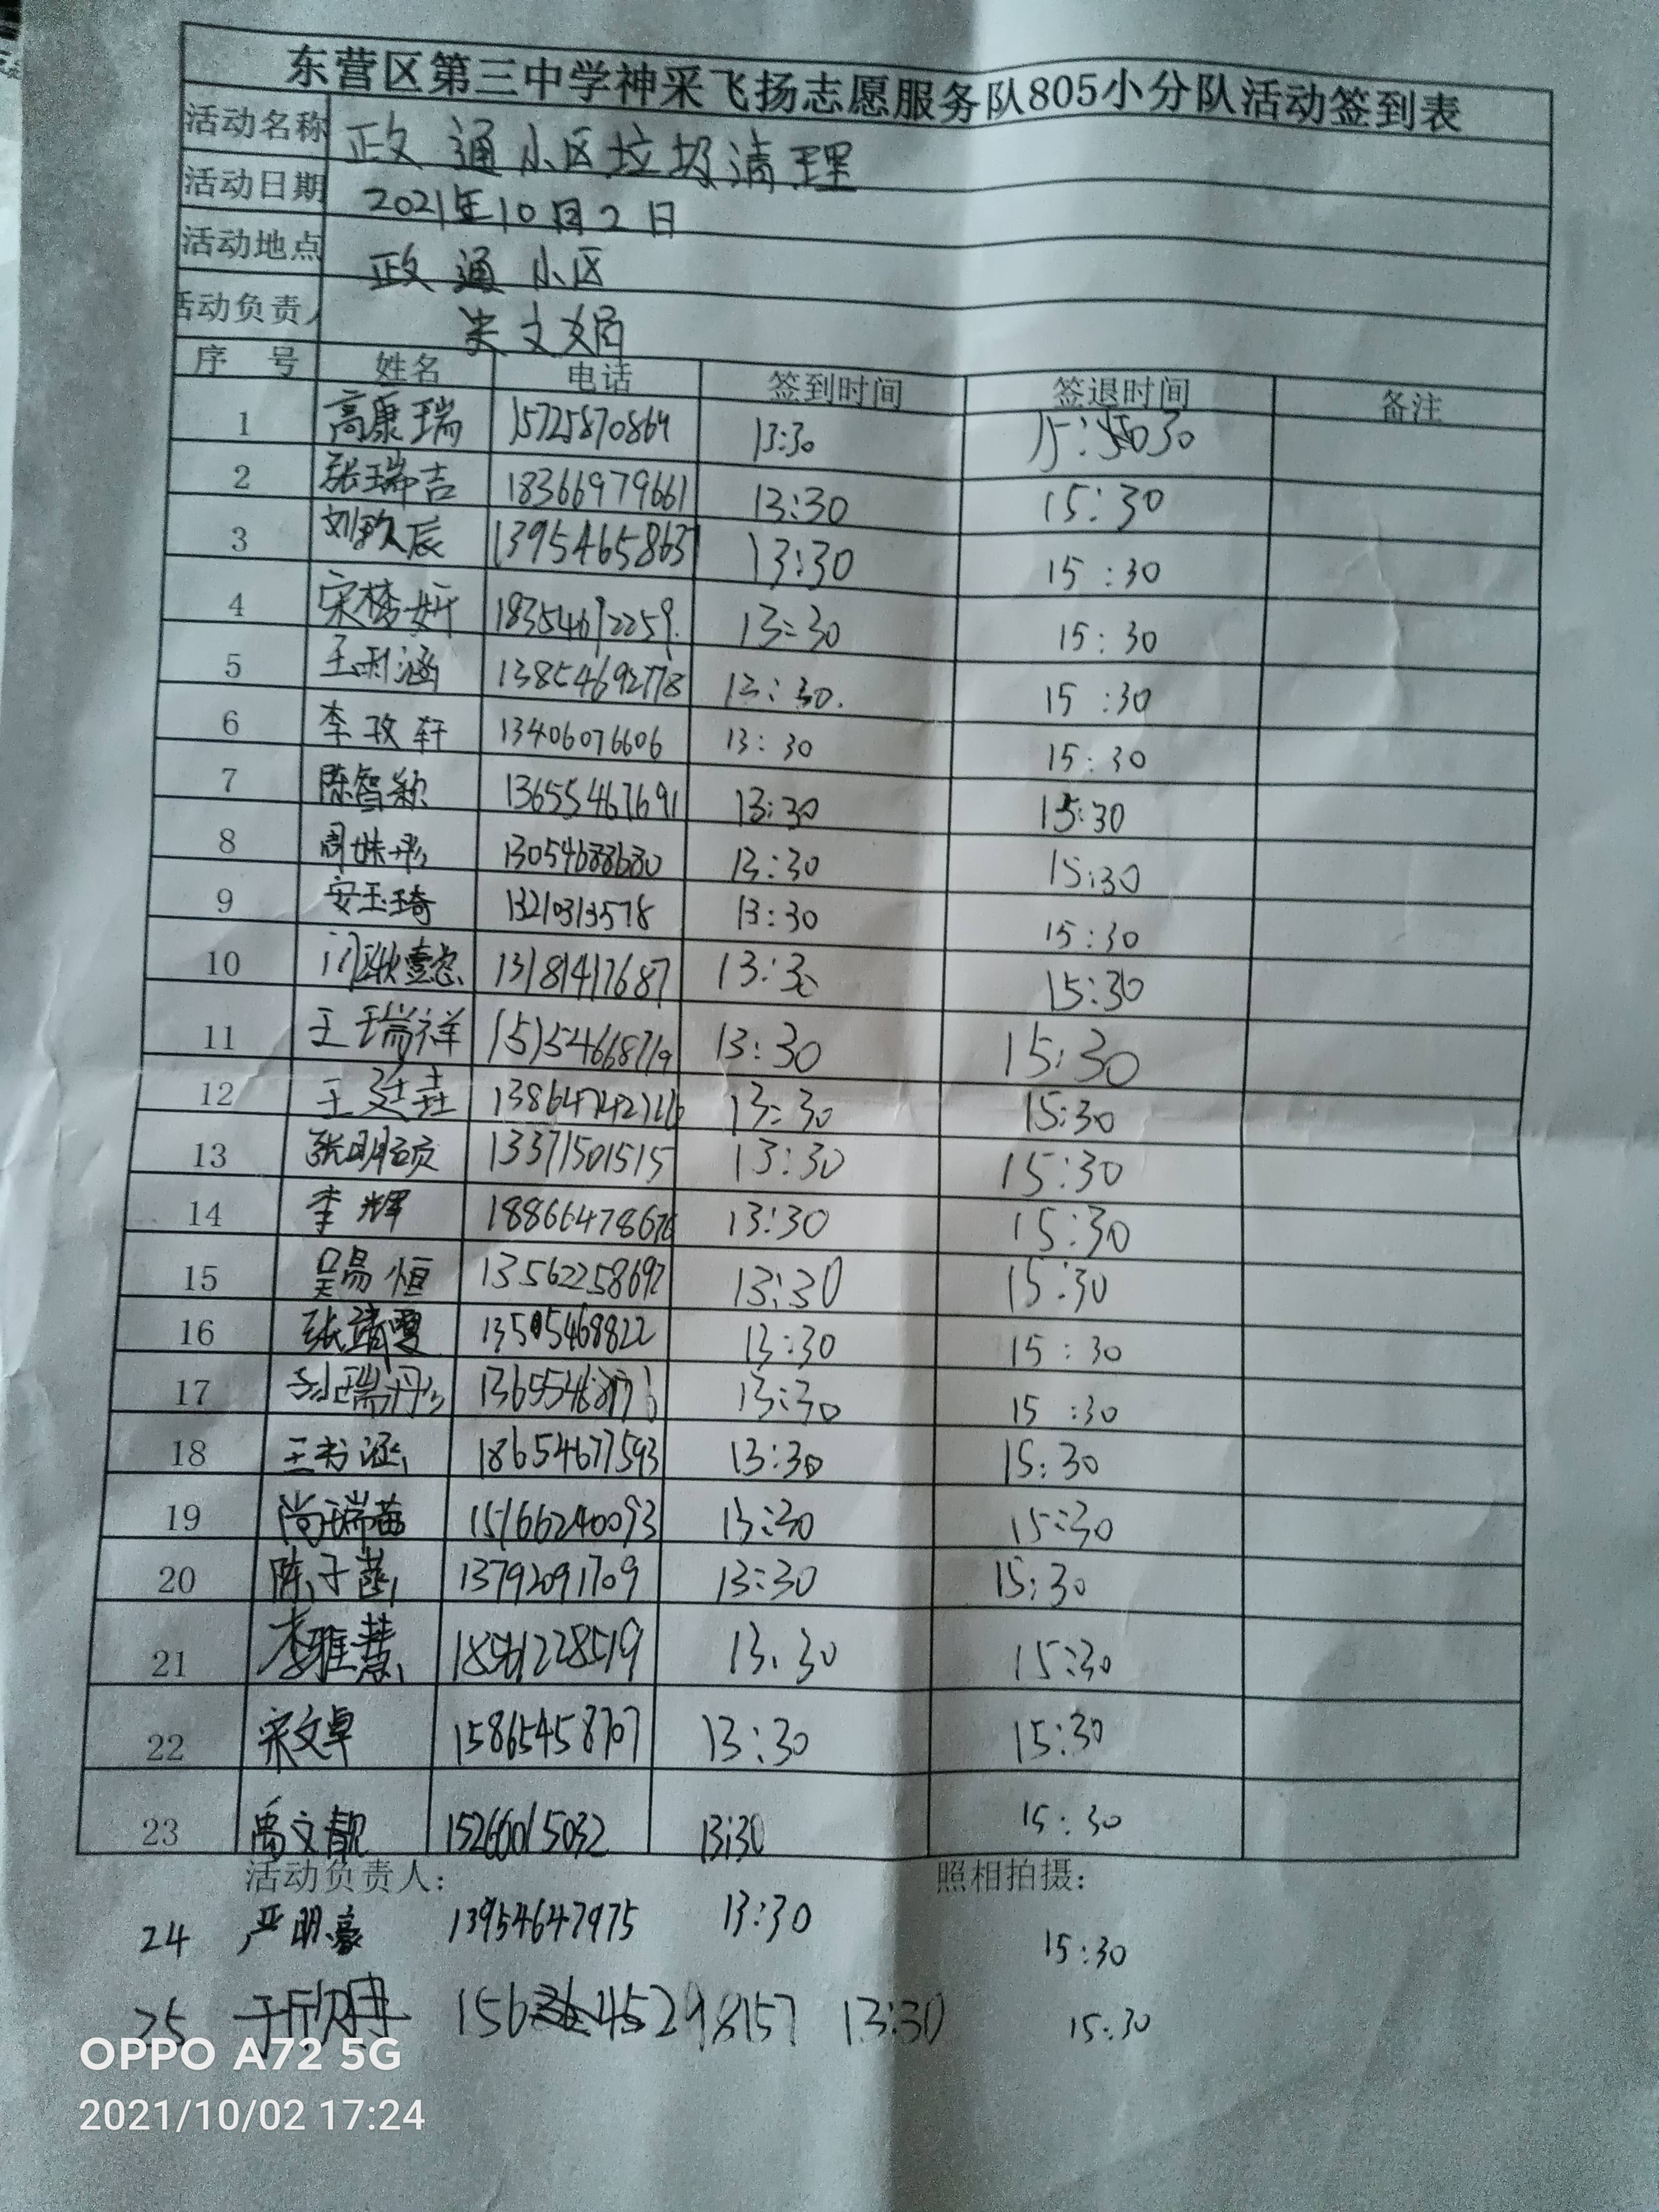 东营区第三中学神采飞扬志愿服务队805小分队活动签到表
活动名称 政通小区垃圾清理
活动日期 2021年10月2日
活动地点 政通小区
活动负责人
序 号 姓名 电话 签到时间 签退时间 备注
1 高康瑞 15725870864 13:30 15: 30
2 张瑞吉 18366979661 13:30 15:30
3 刘 辰 13954658631 13:30 15:30
4 宋梦妍 18354692259. 13:30 15:30
5 王 涵 13854692778 13:30. 15:30
6 李政轩 13406076606 13:30 15:30
7 陈智颖 13655467691 13:30 15:30
8 周姝彤 13054688680 13:30 15:30
9 安玉琦 13210313578 13:30 15:30
10 13181417687 13:30 15:30
11 王瑞祥 13:30 15:30
12 王廷垚 13:30 15:30
13 张明 13371501515 13:30 15:30
14 李辉 18866478676 13:30 15:30
15 吴易恒 13562258692 13:30 15:30
16 张靖雯 13505468822 13:30 15:30
17 瑞 13:30 15:30
18 王书涵 18654677593 13:30 15:30
19 尚瑞茜 15166240093 13:30 15:30
20 陈子菡 13792091709 13:30 15:30
21 李雅慧 18561228519 13:30 15:30
22 宋文卓 15865458707 13:30 15:30
23 禹文靓 15266015032 13:30 15:30
活动负责人： 照相拍摄：
24 严明豪 13954647975 13:30 15:30
25 于欣冉 13:30 15:30
OPPO A72 5G
2021/10/02 17:24